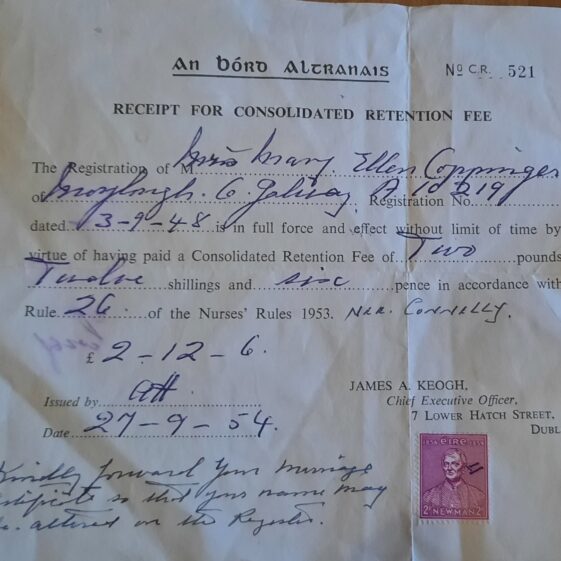 An Bórd Altranais
No C.R. 521
RECEIPT FOR CONSOLIDATED RETENTION FEE
The Registration of Miss Mary Ellen Coppinger
of Moylough. Co Galway Registration No. A 10219
dated 3-9-48 is in full force and effect without limit of time by
virtue of having paid a Consolidated Retention Fee of Two pounds
Twelve shillings and six pence in accordance with
Rule 26 of the Nurses' Rules 1953. Née. Connelly.
£ 2-12-6.
JAMES A. KEOGH,
Issued by
Chief Executive Officer,
7 Lower Hatch Street,
Date 27-9-54.
Dubl
Kindly forward your marriage
certificate so that your name may
be altered on the Register.
1854 éire 1954
2d NEWMAN 2d